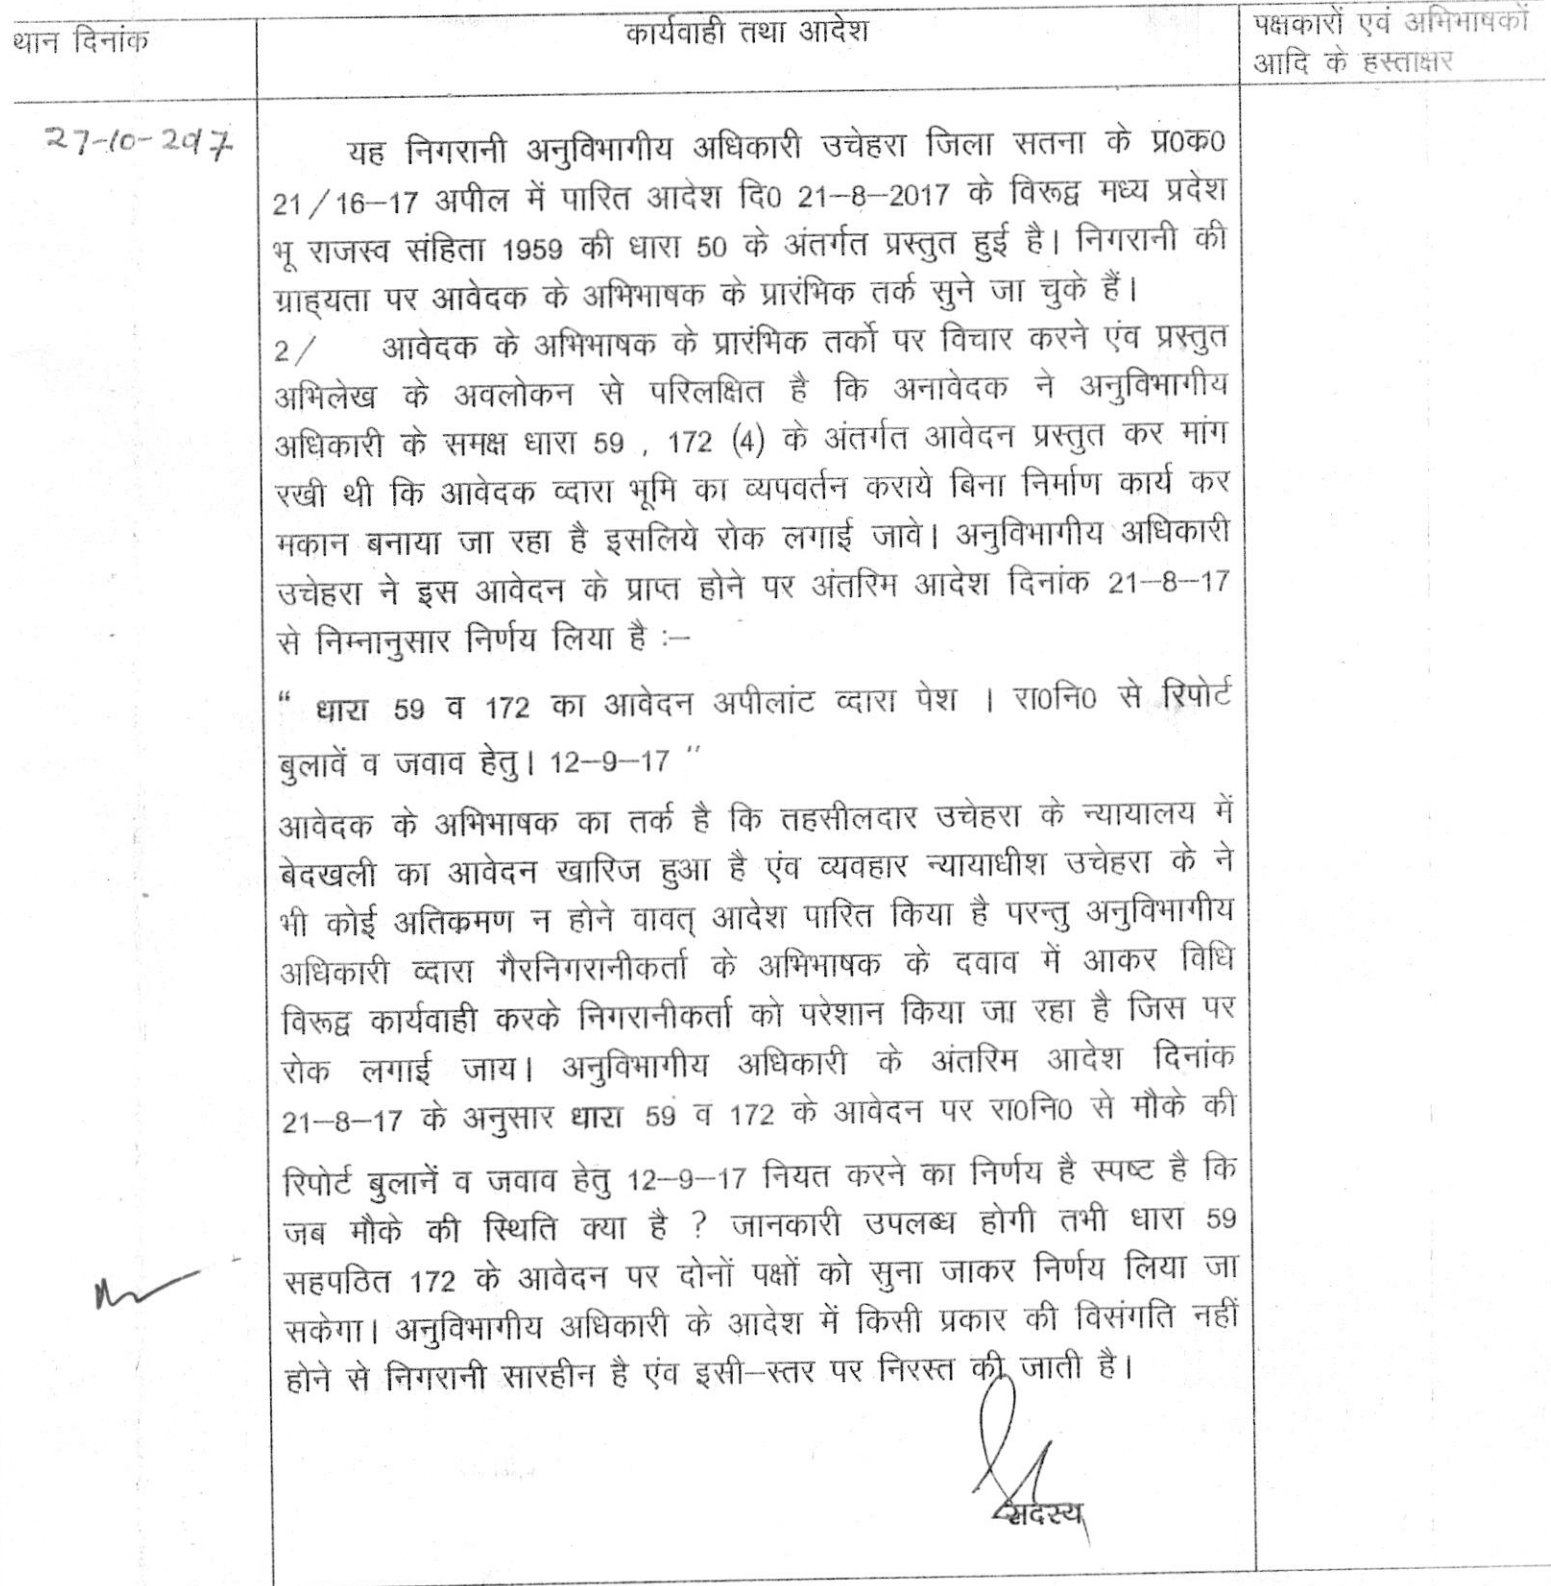 थान दिनांक
कार्यवाही तथा आदेश
पक्षकारों एवं अभिभाषकों
आदि के हस्ताक्षर
27-10-2017
यह निगरानी अनुविभागीय अधिकारी उचेहरा जिला सतना के प्र0क0
21/16–17 अपील में पारित आदेश दि0 21–8–2017 के विरूद्व मध्य प्रदेश
भू राजस्व संहिता 1959 की धारा 50 के अंतर्गत प्रस्तुत हुई है। निगरानी की
ग्राह्यता पर आवेदक के अभिभाषक के प्रारंभिक तर्क सुने जा चुके हैं।
2/ आवेदक के अभिभाषक के प्रारंभिक तर्को पर विचार करने एंव प्रस्तुत
अभिलेख के अवलोकन से परिलक्षित है कि अनावेदक ने अनुविभागीय
अधिकारी के समक्ष धारा 59 , 172 (4) के अंतर्गत आवेदन प्रस्तुत कर मांग
रखी थी कि आवेदक व्दारा भूमि का व्यपवर्तन कराये बिना निर्माण कार्य कर
मकान बनाया जा रहा है इसलिये रोक लगाई जावे। अनुविभागीय अधिकारी
उचेहरा ने इस आवेदन के प्राप्त होने पर अंतरिम आदेश दिनांक 21–8–17
से निम्नानुसार निर्णय लिया है :–
“ धारा 59 व 172 का आवेदन अपीलांट व्दारा पेश । रा0नि0 से रिपोर्ट
बुलावें व जवाव हेतु। 12–9–17 ”
आवेदक के अभिभाषक का तर्क है कि तहसीलदार उचेहरा के न्यायालय में
बेदखली का आवेदन खारिज हुआ है एंव व्यवहार न्यायाधीश उचेहरा के ने
भी कोई अतिक्रमण न होने वावत् आदेश पारित किया है परन्तु अनुविभागीय
अधिकारी व्दारा गैरनिगरानीकर्ता के अभिभाषक के दवाव में आकर विधि
विरूद्व कार्यवाही करके निगरानीकर्ता को परेशान किया जा रहा है जिस पर
रोक लगाई जाय। अनुविभागीय अधिकारी के अंतरिम आदेश दिनांक
21–8–17 के अनुसार धारा 59 व 172 के आवेदन पर रा0नि0 से मौके की
रिपोर्ट बुलानें व जवाव हेतु 12–9–17 नियत करने का निर्णय है स्पष्ट है कि
जब मौके की स्थिति क्या है ? जानकारी उपलब्ध होगी तभी धारा 59
सहपठित 172 के आवेदन पर दोनों पक्षों को सुना जाकर निर्णय लिया जा
सकेगा। अनुविभागीय अधिकारी के आदेश में किसी प्रकार की विसंगति नहीं
होने से निगरानी सारहीन है एंव इसी–स्तर पर निरस्त की जाती है।
सदस्य